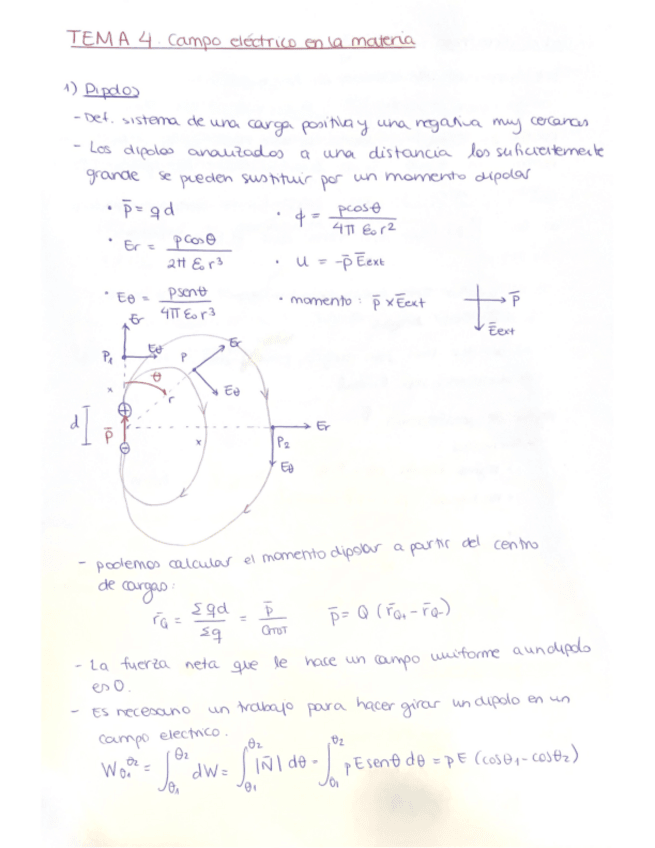 TEMA 4. Campo eléctrico en la materia
1) Dipolos
- Def. sistema de una carga positiva y una negativa muy cercanas
- Los dipolos analizados a una distancia lo suficientemente
grande se pueden sustituir por un momento dipolar
• p̄ = qd • ϕ = pcosθ / 4π ε₀r²
• Er = pcosθ / 2π ε₀r³ • u = -p̄ Ēext
• Eθ = psenθ / 4π ε₀r³ • momento : p̄ x Ēext
p̄
Ēext
Er
P₁ Eθ P Er
x θ r Eθ
d p̄ x Er
P₂
Eθ
- podemos calcular el momento dipolar a partir del centro
de cargas:
r̄Q = Σqd / Σq = p̄ / QTOT p̄ = Q (r̄Q+ - r̄Q-)
- La fuerza neta que le hace un campo uniforme a un dipolo
es 0.
- Es necesario un trabajo para hacer girar un dipolo en un
campo electrico.
Wθ₁^θ₂ = ∫θ₁^θ₂ dW = ∫θ₁^θ₂ |N̄| dθ = ∫θ₁^θ₂ pEsenθ dθ = pE (cosθ₁ - cosθ₂)